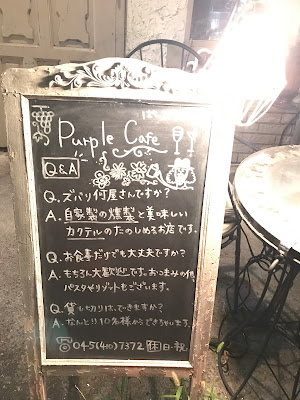 Bar
Purple Cafe
Q&A
Q. ズバリ何屋さんですか?
A. 自家製の燻製と美味しい
カクテルのたのしめるお店です。
Q. お食事だけでも大丈夫ですか?
A. もちろん大歓迎です。おつまみの他
パスタやリゾートもございます。
Q. 貸し切りは、できますか?
A. なんと!!10名様からできちゃいます。
☎04-5(410)7372 休 日・祝